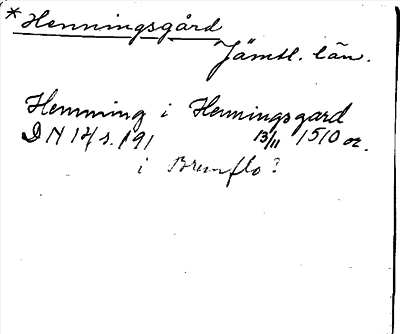 *Henningsgård
Jämtl. län.
Hemming i Henningsgard
DN 14 s. 191 13/11 1510 or.
i Brunflo?